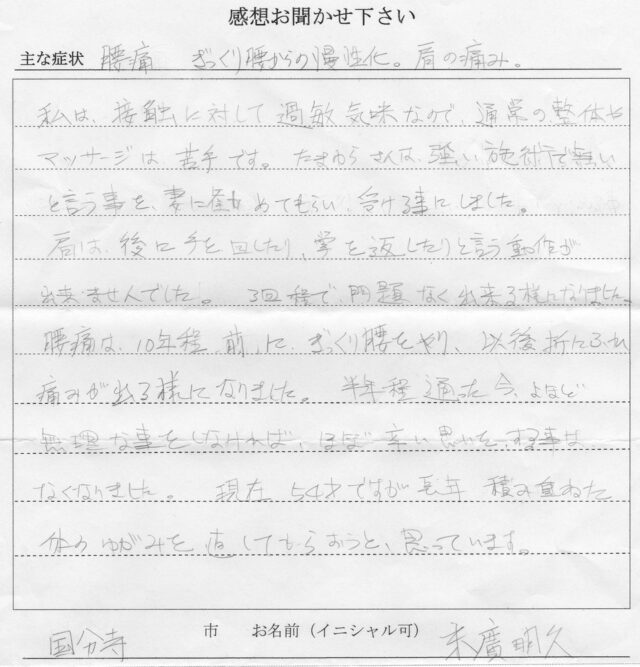 感想お聞かせ下さい
主な症状 腰痛 ぎっくり腰からの慢性化。肩の痛み。
私は、接触に対して過敏気味なので、通常の整体や
マッサージは、苦手です。たまわらさんは、強い施術で無い
と言う事を、妻に勧めてもらい、受ける事にしました。
肩は、後に手を回したり、掌を返したりと言う動作が
出来ませんでした。3回程で、問題なく出来る様になりました。
腰痛は、10年程、前に、ぎっくり腰をやり、以後折にふれ
痛みが出る様になりました。半年程通った今、よほど
無理な事をしなければ、ほぼ辛い思いを、する事は
なくなりました。現在、54才ですが長年積み重ねた
体のゆがみを直してもらおうと、思っています。
国分寺 市 お名前（イニシャル可） 末廣明久